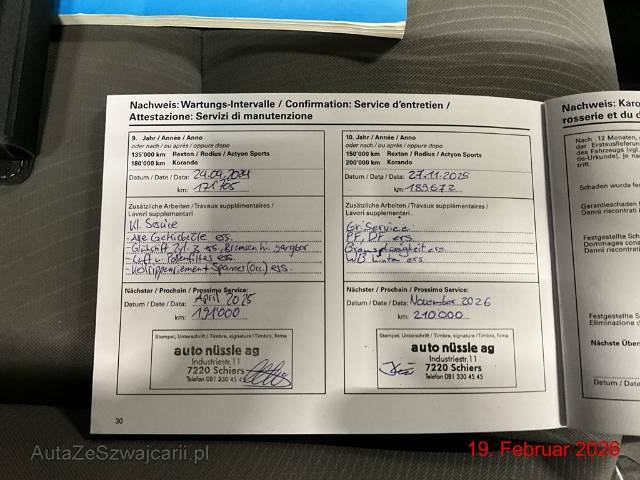 Nachweis: Wartungs-Intervalle / Confirmation: Service d'entretien /
Attestazione: Servizi di manutenzione
9. Jahr / Année / Anno
oder nach / ou après / oppure dopo
135'000 km Rexton / Rodius / Actyon Sports
180'000 km Korando
Datum / Date / Data: 24.04.2024
km: 171'705
Zusätzliche Arbeiten / Travaux supplémentaires /
Lavori supplementari:
Kl. Service
Alle Getriebeöle ers.
Luft u. Pollenfilter ers.
Nächster / Prochain / Prossimo Service:
Datum / Date / Data: April 2025
km: 191'000
Stempel, Unterschrift / Timbre, signature / Timbro, firma
auto nüssle ag
Industriestr. 11
7220 Schiers
Telefon 081 330 45 45
30
10. Jahr / Année / Anno
oder nach / ou après / oppure dopo
150'000 km Rexton / Rodius / Actyon Sports
200'000 km Korando
Datum / Date / Data: 27.11.2025
km: 189672
Zusätzliche Arbeiten / Travaux supplémentaires /
Lavori supplementari:
Gr. Service
BF, DF ers.
Bremsflüssigkeit ers.
WB hinten ers.
Nächster / Prochain / Prossimo Service:
Datum / Date / Data: November 2026
km: 210000
Stempel, Unterschrift / Timbre, signature / Timbro, firma
auto nüssle ag
Industriestr. 11
7220 Schiers
Telefon 081 330 45 45
Nachweis: Karo
rosserie et du d
Nach 12 Monaten,
der Erstauslieferun
des Fahrzeugs (vgl.
tie-Urkunde), je nac
trift.
Schaden wurde fe
Garantieschaden
Danni riscontrati
Festgestellte Sc
Dommages cons
Danni riscontrati
Festgestellte S
Eliminazione d
Nächste Über
Datum / Date
AutaZeSzwajcarii.pl
19. Februar 2026